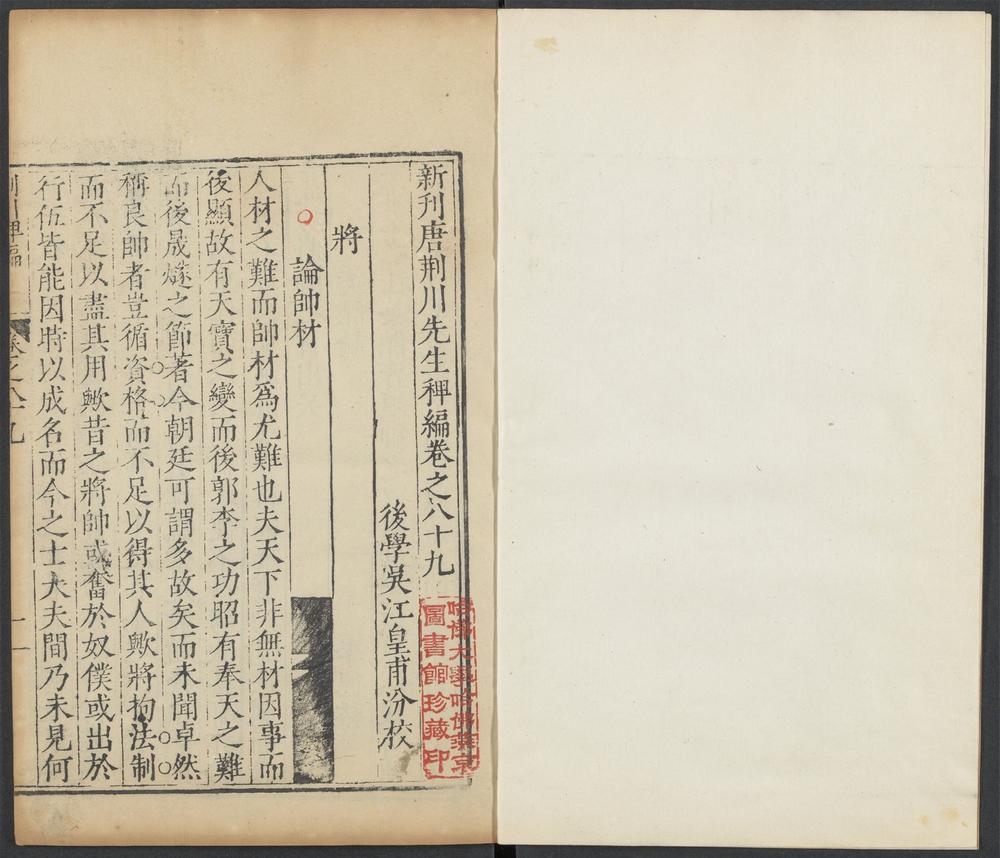 新刊唐荆川先生稗編卷之八十九
後學吳江皇甫汾校
將
論帥材
人材之難而帥材爲尤難也夫天下非無材因事而
後顯故有天寶之變而後郭李之功昭有奉天之難
而後晟燧之節著今朝廷可謂多故矣而未聞卓然
稱良帥者豈循資格而不足以得其人歟將拘法制
而不足以盡其用歟昔之將帥或奮於奴僕或出於
行伍皆能因時以成名而今之士大夫間乃未見何
荆川稗編
卷之八十九
一
哈佛大學哈佛燕京
圖書館珍藏印